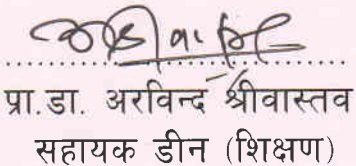 प्रा.डा. अरविन्द श्रीवास्तव
सहायक डीन (शिक्षण)